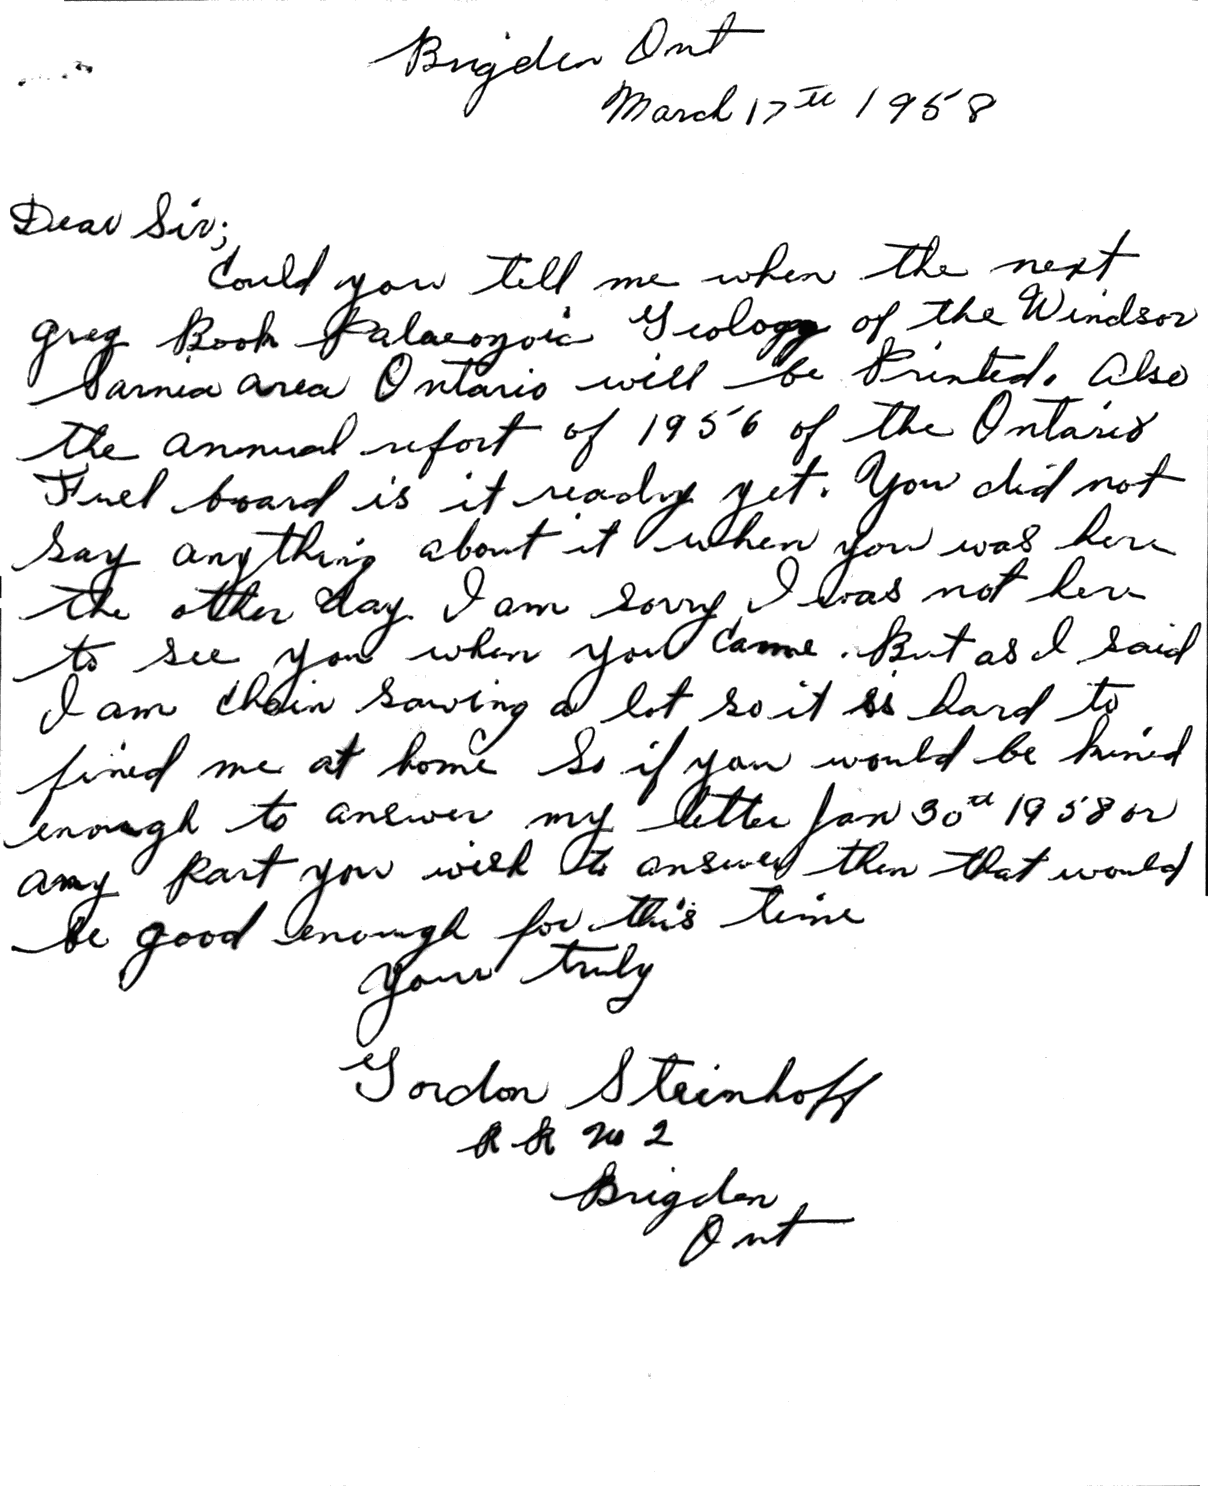 Brigden Ont
March 17th 1958
Dear Sir;
Could you tell me when the next
greg Book Palaeozoic Geology of the Windsor
Sarnia area Ontario will be Printed. Also
the annual refort of 1956 of the Ontario
Fuel board is it ready yet. You did not
say anything about it when you was here
the other day. I am sorry I was not here
to see you when you came. But as I said
I am chain sawing a lot so it is hard to
fined me at home So if you would be kined
enough to answer my letter Jan 30th 1958 or
any part you wish to answer then that would
be good enough for this time
Your truly
Gordon Steinhoff
R R No 2
Brigden
Ont